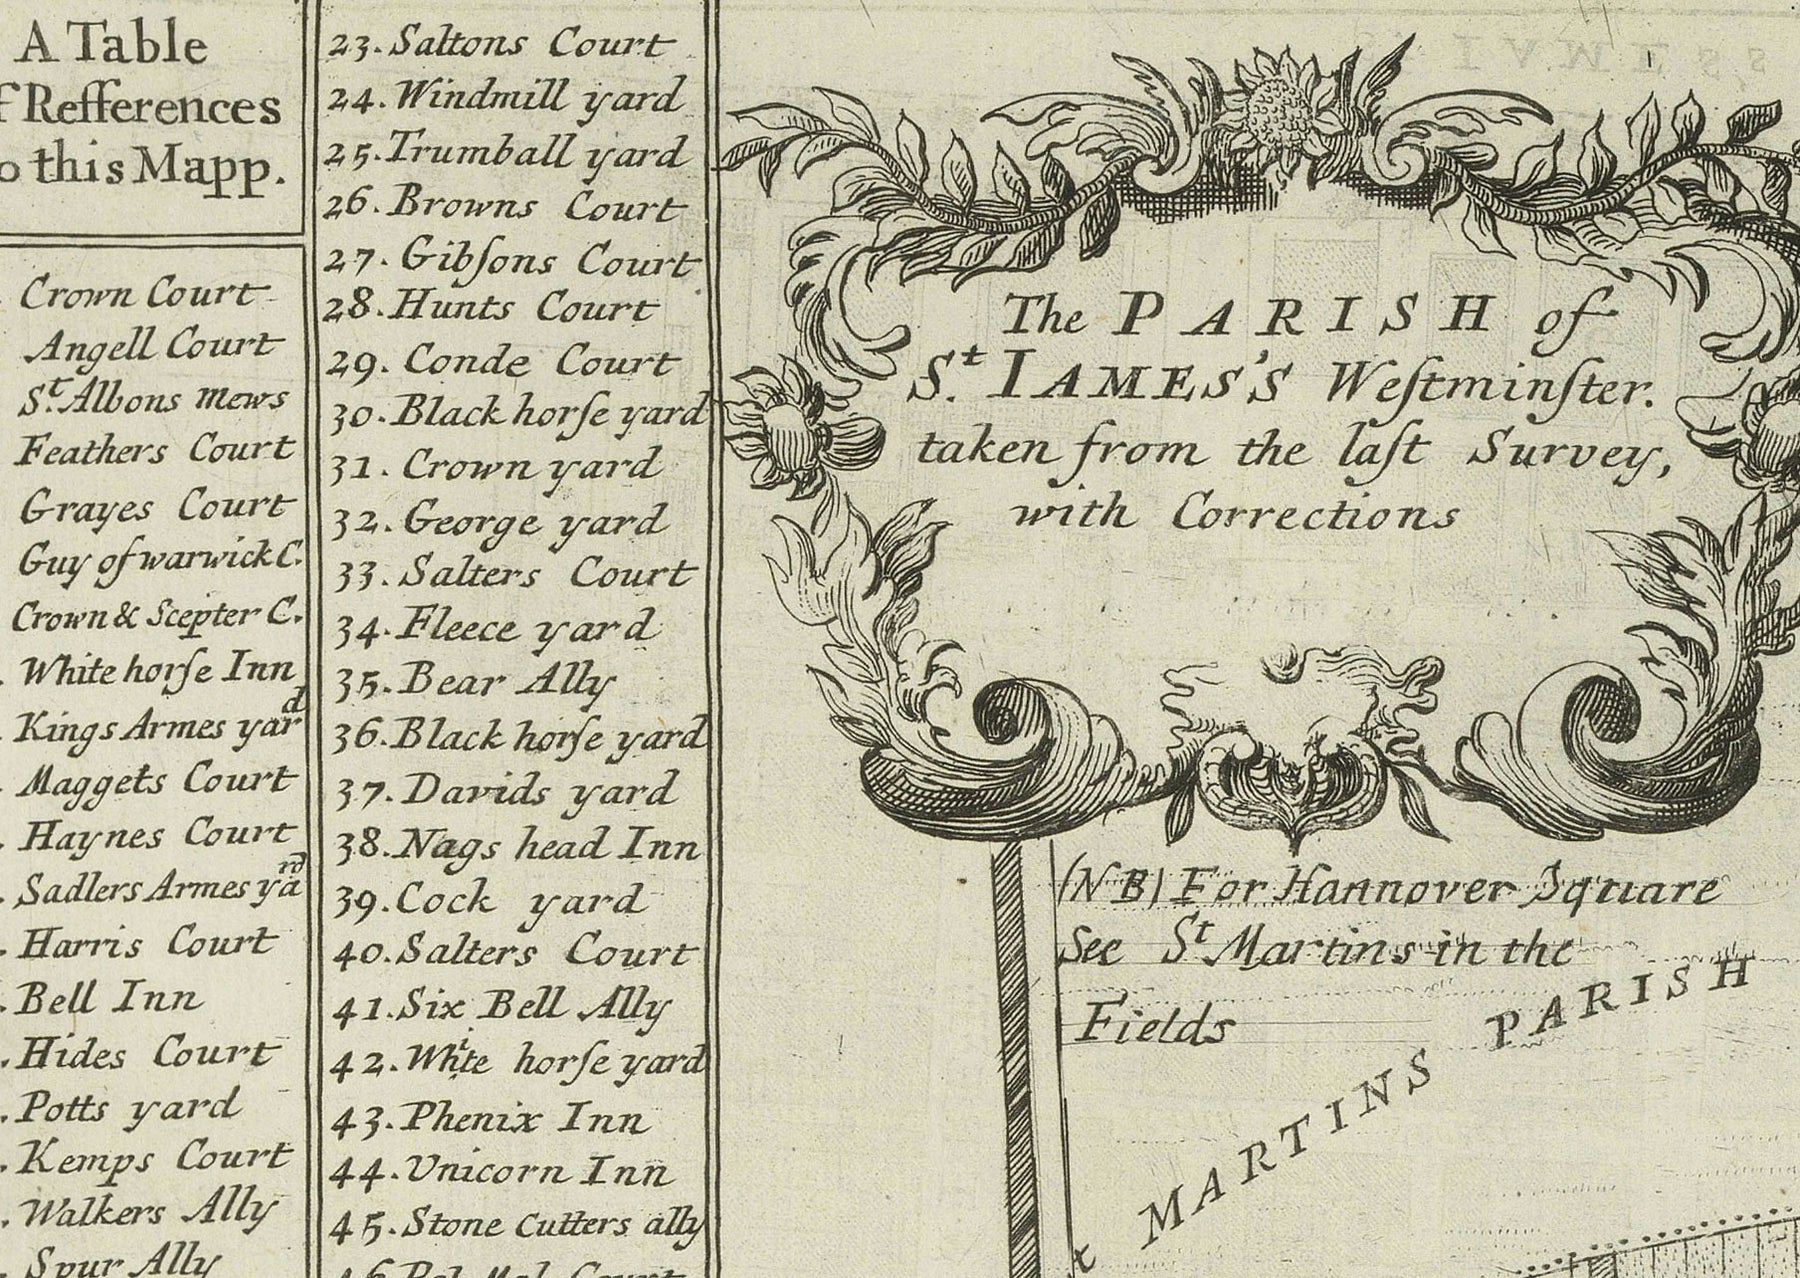 A Table
Refferences
this Mapp.
Crown Court
Angell Court
St. Albons mews
Feathers Court
Grayes Court
Guy of warwick C.
Crown & Scepter C.
White horſe Inn
Kings Armes yard
Maggets Court
Haynes Court
Sadlers Armes yard
Harris Court
Bell Inn
Hides Court
Potts yard
Kemps Court
Walkers Ally
Spur Ally
23. Saltons Court
24. Windmill yard
25. Trumball yard
26. Browns Court
27. Gibſons Court
28. Hunts Court
29. Conde Court
30. Black horſe yard
31. Crown yard
32. George yard
33. Salters Court
34. Fleece yard
35. Bear Ally
36. Black horſe yard
37. Davids yard
38. Nags head Inn
39. Cock yard
40. Salters Court
41. Six Bell Ally
42. White horſe yard
43. Phenix Inn
44. Vnicorn Inn
45. Stone Cutters ally
46. Pel Mel Court
The PARISH of
St. IAMES'S Weſtminſter.
taken from the laſt Survey,
with Corrections
(NB) For Hannover Square
See St Martins in the
Fields
MARTINS PARISH